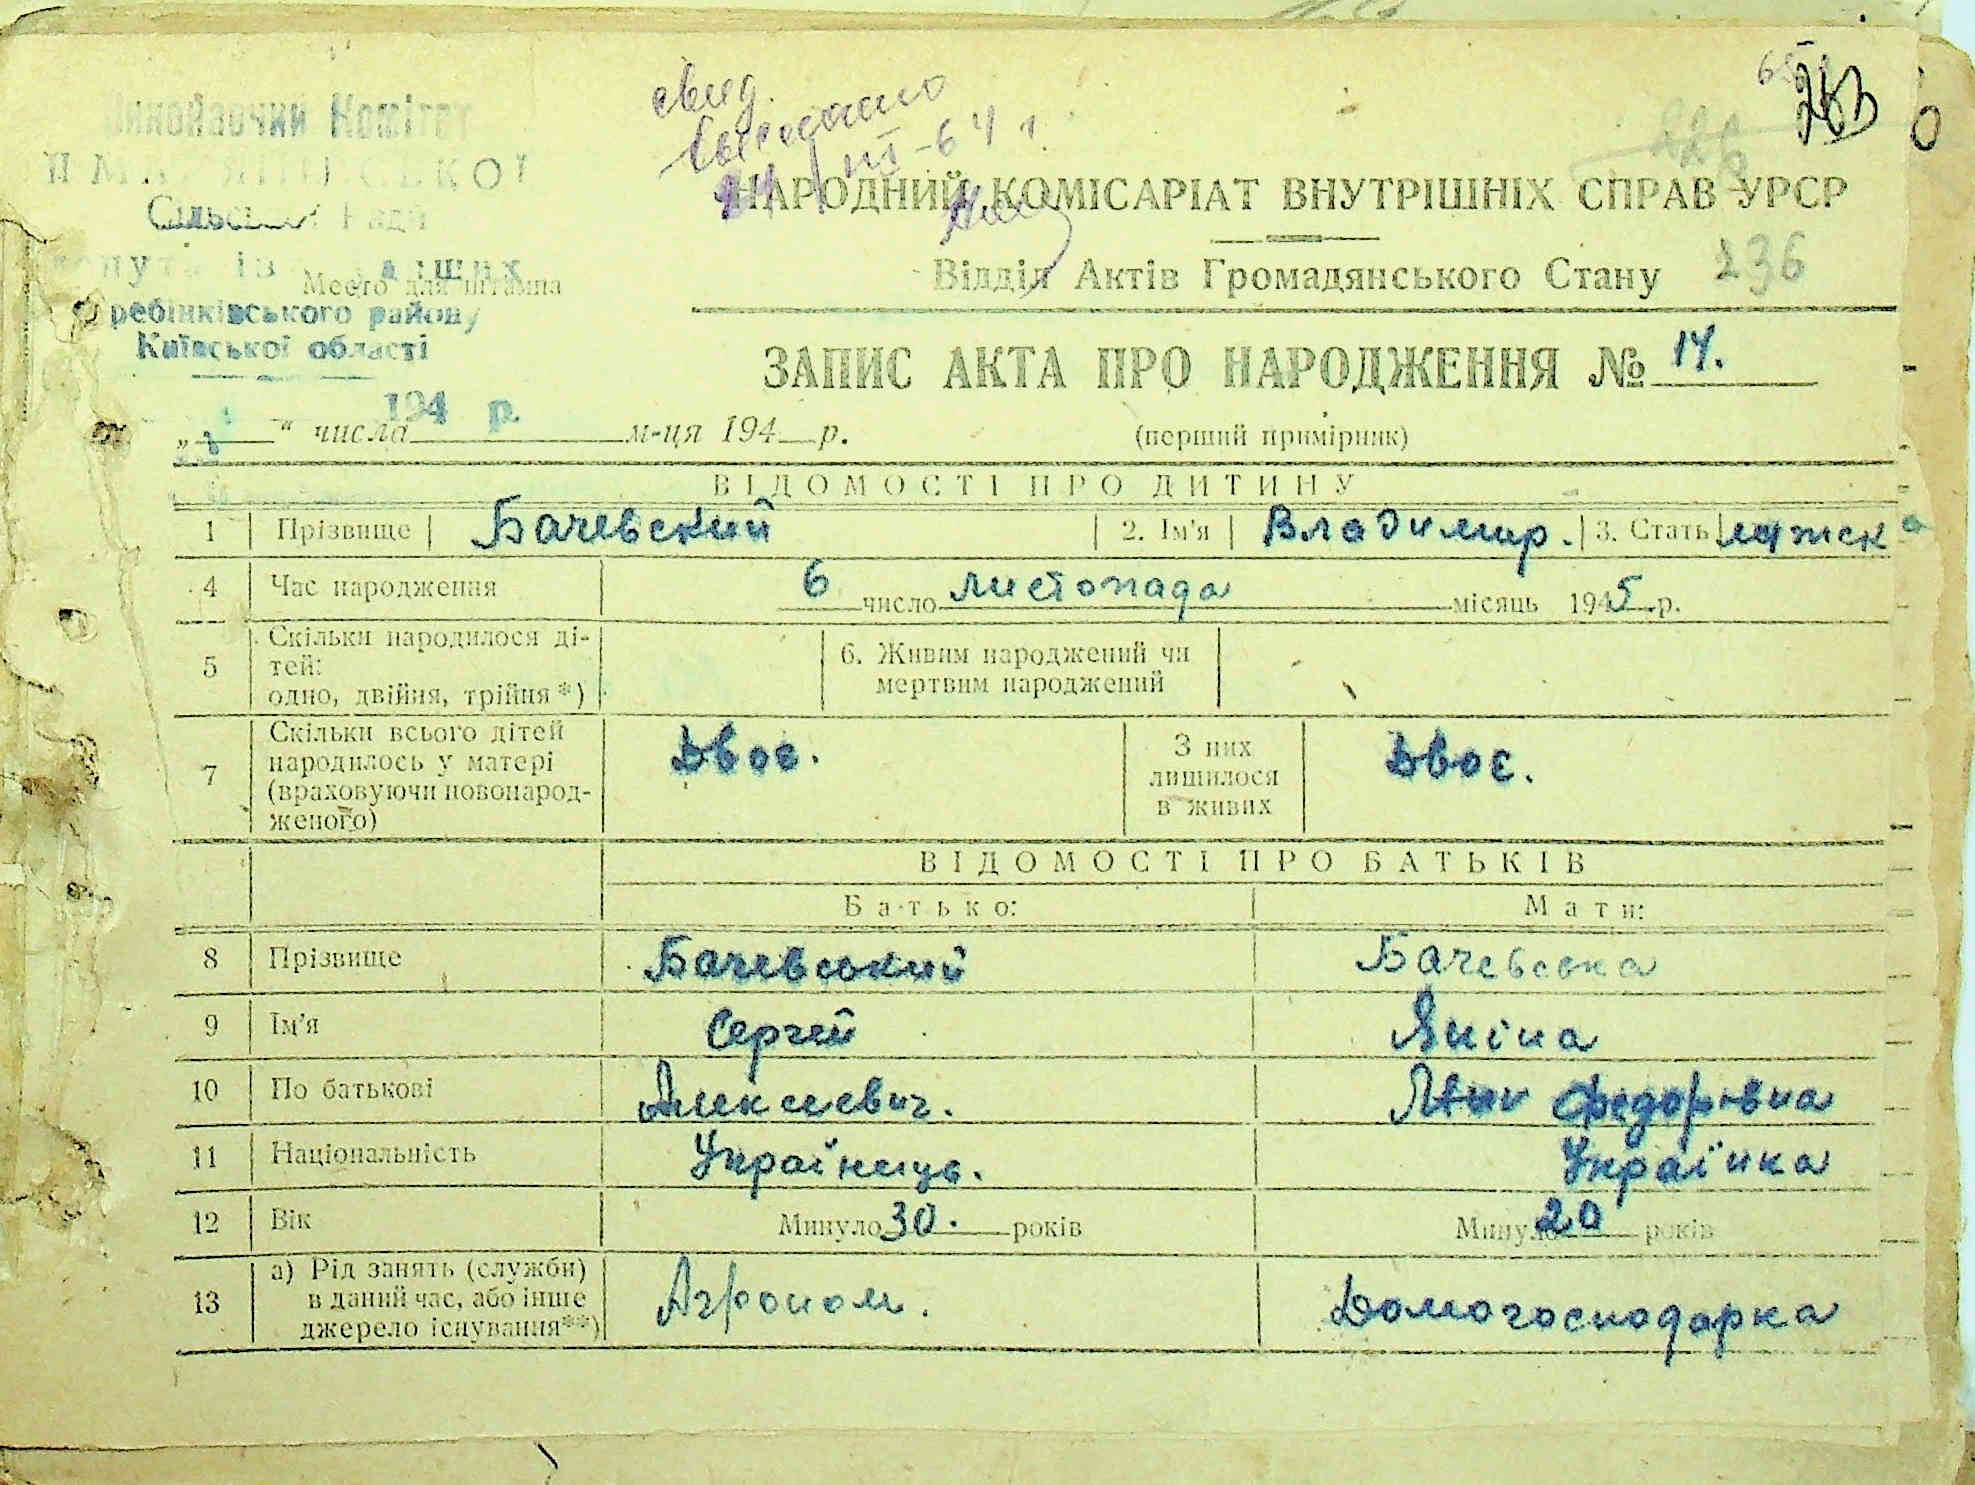 Виконавчий Комітет
Сільської Ради
Место для штампа
Гребінківського району
Київської області
194 р.
свид.
выслано
24/III-64 г.
236
НАРОДНИЙ КОМІСАРІАТ ВНУТРІШНІХ СПРАВ УРСР
Відділ Актів Громадянського Стану 236
ЗАПИС АКТА ПРО НАРОДЖЕННЯ № 14.
„ “ числа м-ця 194 р. (перший примірник)
ВІДОМОСТІ ПРО ДИТИНУ
1 Прізвище Бачевский 2. Ім'я Владимир. 3. Стать мужска
4 Час народження 6 число листопада місяць 1945 р.
5 Скільки народилося ді-
тей:
одно, двійня, трійня *)
6. Живим народжений чи
мертвим народжений
7 Скільки всього дітей
народилось у матері
(враховуючи новонарод-
женого)
Двоє.
З них
лишилося
в живих
Двоє.
ВІДОМОСТІ ПРО БАТЬКІВ
Батько: Мати:
8 Прізвище Бачевський Бачевська
9 Ім'я Сергей Яніна
10 По батькові Алексеевич. Федорівна
11 Національність Українець. Українка
12 Вік Минуло 30. років Минуло 20 років
13 а) Рід занять (служби)
в даний час, або інше
джерело існування**)
Агроном. Домогосподарка